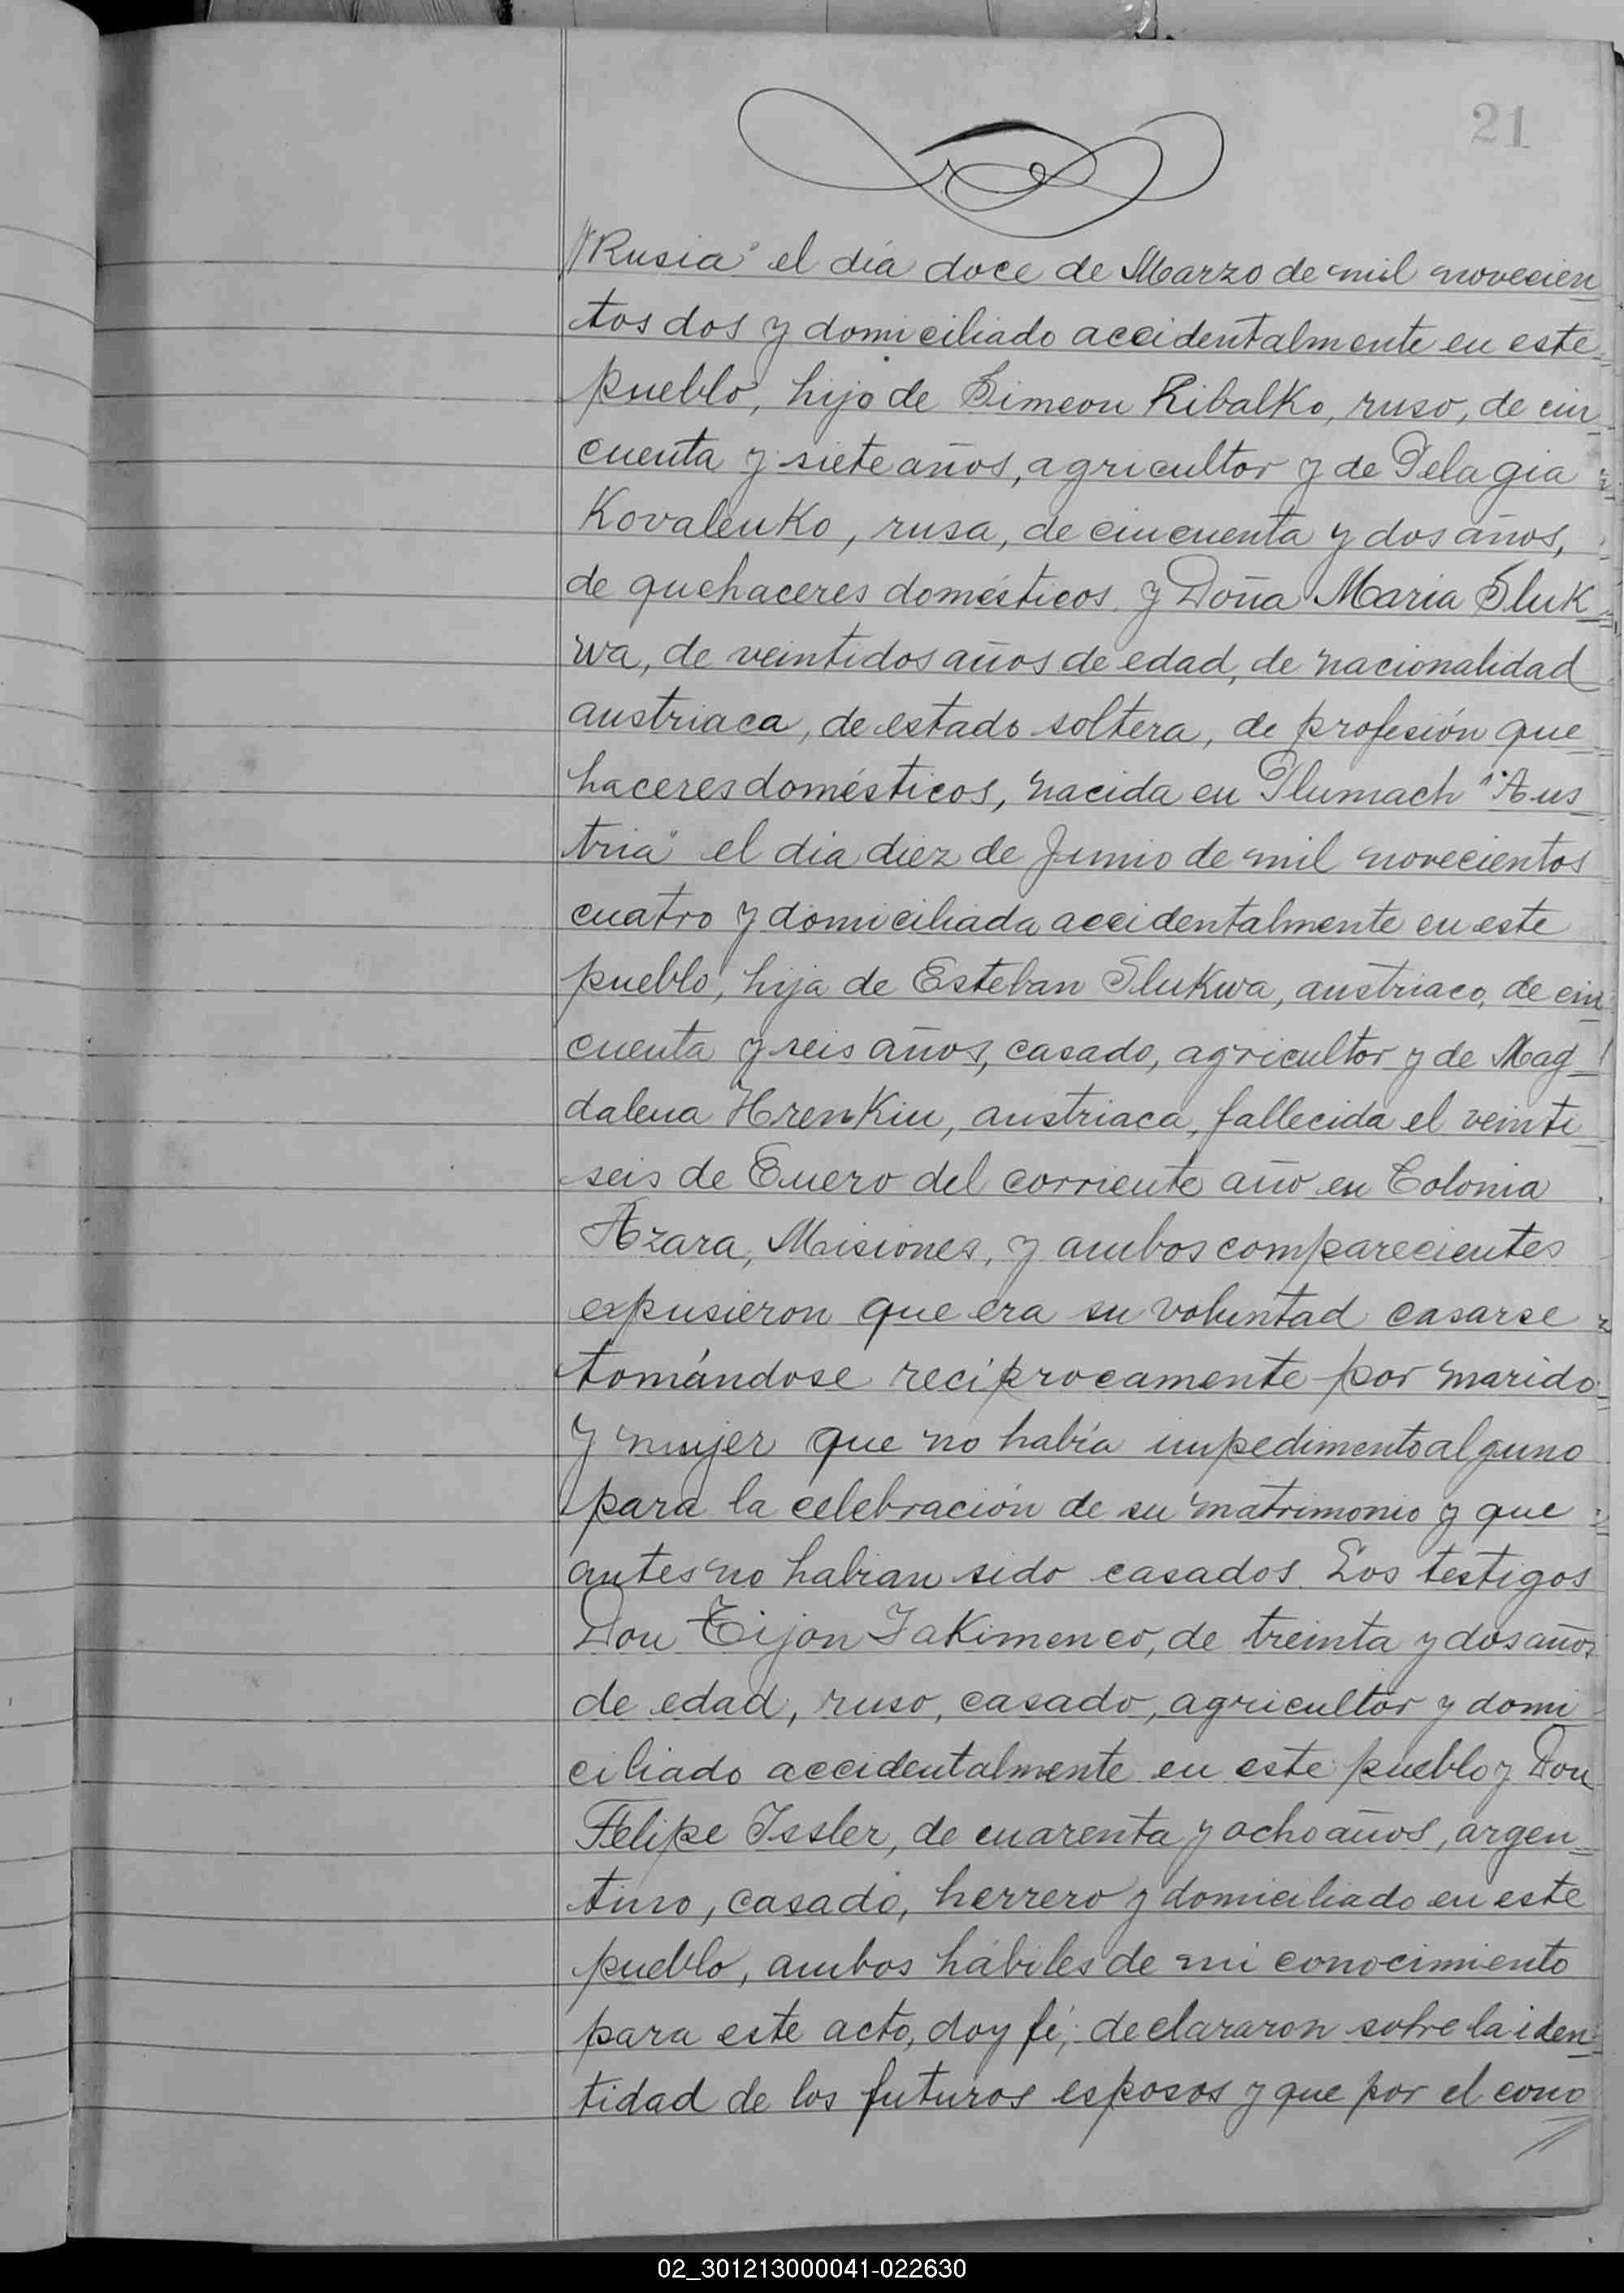 21
"Rusia" el día doce de Marzo de mil novecien
tos dos y domiciliado accidentalmente en este
pueblo, hijo de Simeon Ribalko, ruso, de cin
cuenta y siete años, agricultor y de Pelagia
Kovalenko, rusa, de cincuenta y dos años,
de quehaceres domésticos y Doña Maria Sluk
wa, de veintidos años de edad, de nacionalidad
austriaca, de estado soltera, de profesión que
haceres domésticos, nacida en Tlumach "Aus
tria" el día diez de Junio de mil novecientos
cuatro y domiciliada accidentalmente en este
pueblo, hija de Esteban Slukwa, austriaco, de cin
cuenta y seis años, casado, agricultor y de Mag
dalena Hrenkiu, austriaca, fallecida el veinti
seis de Enero del corriente año en Colonia
Azara, Misiones, y ambos comparecientes
expusieron que era su voluntad casarse
tomándose recíprocamente por marido
y mujer que no había impedimento alguno
para la celebración de su matrimonio y que
antes no habian sido casados. Los testigos
Don Tijon Jakimenco, de treinta y dos años
de edad, ruso, casado, agricultor y domi
ciliado accidentalmente en este pueblo y Don
Felipe Issler, de cuarenta y ocho años, argen
tino, casado, herrero y domiciliado en este
pueblo, ambos hábiles de mi conocimiento
para este acto, doy fé; declararon sobre la iden
tidad de los futuros esposos y que por el cono
02_301213000041-022630